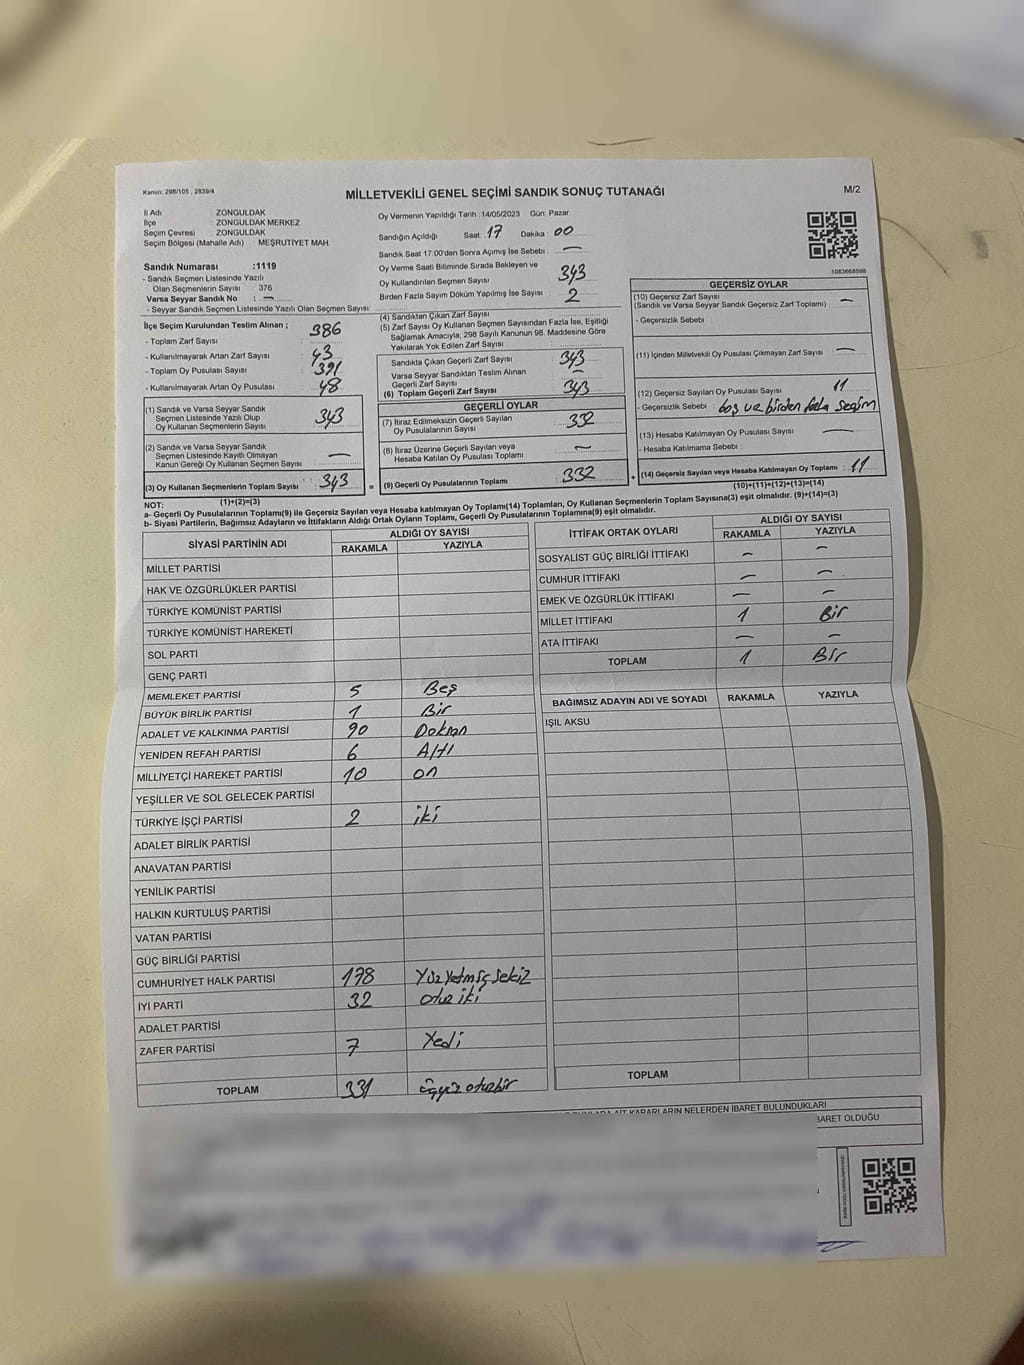 Kanun: 298/105 , 2839/4
MİLLETVEKİLİ GENEL SEÇİMİ SANDIK SONUÇ TUTANAĞI
M/2
İl Adı : ZONGULDAK
İlçe : ZONGULDAK MERKEZ
Seçim Çevresi : ZONGULDAK
Seçim Bölgesi (Mahalle Adı) : MEŞRUTİYET MAH
Sandık Numarası :1119
- Sandık Seçmen Listesinde Yazılı
Olan Seçmenlerin Sayısı : 376
Varsa Seyyar Sandık No : —
- Seyyar Sandık Seçmen Listesinde Yazılı Olan Seçmen Sayısı:
Oy Vermenin Yapıldığı Tarih :14/05/2023 Gün: Pazar
Sandığın Açıldığı Saat: 17 Dakika: 00
Sandık Saat 17:00'den Sonra Açılmış İse Sebebi : —
Oy Verme Saati Bitiminde Sırada Bekleyen ve
Oy Kullandırılan Seçmen Sayısı : 343
Birden Fazla Sayım Döküm Yapılmış İse Sayısı : 2
1083668598
İlçe Seçim Kurulundan Teslim Alınan ;
- Toplam Zarf Sayısı : 386
- Kullanılmayarak Artan Zarf Sayısı : 43
- Toplam Oy Pusulası Sayısı : 391
- Kullanılmayarak Artan Oy Pusulası : 48
(1) Sandık ve Varsa Seyyar Sandık
Seçmen Listesinde Yazılı Olup
Oy Kullanan Seçmenlerin Sayısı : 343
(2) Sandık ve Varsa Seyyar Sandık
Seçmen Listesinde Kayıtlı Olmayan
Kanun Gereği Oy Kullanan Seçmen Sayısı : —
(3) Oy Kullanan Seçmenlerin Toplam Sayısı : 343
(1)+(2)=(3)
(4) Sandıktan Çıkan Zarf Sayısı
(5) Zarf Sayısı Oy Kullanan Seçmen Sayısından Fazla İse, Eşitliği
Sağlamak Amacıyla, 298 Sayılı Kanunun 98. Maddesine Göre
Yakılarak Yok Edilen Zarf Sayısı :
Sandıkta Çıkan Geçerli Zarf Sayısı : 343
Varsa Seyyar Sandıktan Teslim Alınan
Geçerli Zarf Sayısı : —
(6) Toplam Geçerli Zarf Sayısı : 343
GEÇERLİ OYLAR
(7) İtiraz Edilmeksizin Geçerli Sayılan
Oy Pusulalarının Sayısı : 332
(8) İtiraz Üzerine Geçerli Sayılan veya
Hesaba Katılan Oy Pusulası Toplamı : —
= (9) Geçerli Oy Pusulalarının Toplamı : 332
GEÇERSİZ OYLAR
(10) Geçersiz Zarf Sayısı
(Sandık ve Varsa Seyyar Sandık Geçersiz Zarf Toplamı) : —
- Geçersizlik Sebebi :
(11) İçinden Milletvekili Oy Pusulası Çıkmayan Zarf Sayısı : —
(12) Geçersiz Sayılan Oy Pusulası Sayısı : 11
- Geçersizlik Sebebi : boş ve birden fazla seçim
(13) Hesaba Katılmayan Oy Pusulası Sayısı : —
- Hesaba Katılmama Sebebi :
+ (14) Geçersiz Sayılan veya Hesaba Katılmayan Oy Toplamı : 11
(10)+(11)+(12)+(13)=(14)
NOT:
a- Geçerli Oy Pusulalarının Toplamı(9) ile Geçersiz Sayılan veya Hesaba katılmayan Oy Toplamı(14) Toplamları, Oy Kullanan Seçmenlerin Toplam Sayısına(3) eşit olmalıdır. (9)+(14)=(3)
b- Siyasi Partilerin, Bağımsız Adayların ve İttifakların Aldığı Ortak Oyların Toplamı, Geçerli Oy Pusulalarının Toplamına(9) eşit olmalıdır.
SİYASİ PARTİNİN ADI ALDIĞI OY SAYISI
RAKAMLA YAZIYLA
MİLLET PARTİSİ
HAK VE ÖZGÜRLÜKLER PARTİSİ
TÜRKİYE KOMÜNİST PARTİSİ
TÜRKİYE KOMÜNİST HAREKETİ
SOL PARTİ
GENÇ PARTİ
MEMLEKET PARTİSİ 5 Beş
BÜYÜK BİRLİK PARTİSİ 1 Bir
ADALET VE KALKINMA PARTİSİ 90 Doksan
YENİDEN REFAH PARTİSİ 6 Altı
MİLLİYETÇİ HAREKET PARTİSİ 10 on
YEŞİLLER VE SOL GELECEK PARTİSİ
TÜRKİYE İŞÇİ PARTİSİ 2 iki
ADALET BİRLİK PARTİSİ
ANAVATAN PARTİSİ
YENİLİK PARTİSİ
HALKIN KURTULUŞ PARTİSİ
VATAN PARTİSİ
GÜÇ BİRLİĞİ PARTİSİ
CUMHURİYET HALK PARTİSİ 178 Yüz Yetmiş sekiz
İYİ PARTİ 32 otuz iki
ADALET PARTİSİ
ZAFER PARTİSİ 7 Yedi
TOPLAM 331 üçyüz otuzbir
İTTİFAK ORTAK OYLARI ALDIĞI OY SAYISI
RAKAMLA YAZIYLA
SOSYALİST GÜÇ BİRLİĞİ İTTİFAKI — —
CUMHUR İTTİFAKI — —
EMEK VE ÖZGÜRLÜK İTTİFAKI — —
MİLLET İTTİFAKI 1 Bir
ATA İTTİFAKI — —
TOPLAM 1 Bir
BAĞIMSIZ ADAYIN ADI VE SOYADI RAKAMLA YAZIYLA
IŞIL AKSU
TOPLAM
AİT KARARLARIN NELERDEN İBARET BULUNDUKLARI
İBARET OLDUĞU